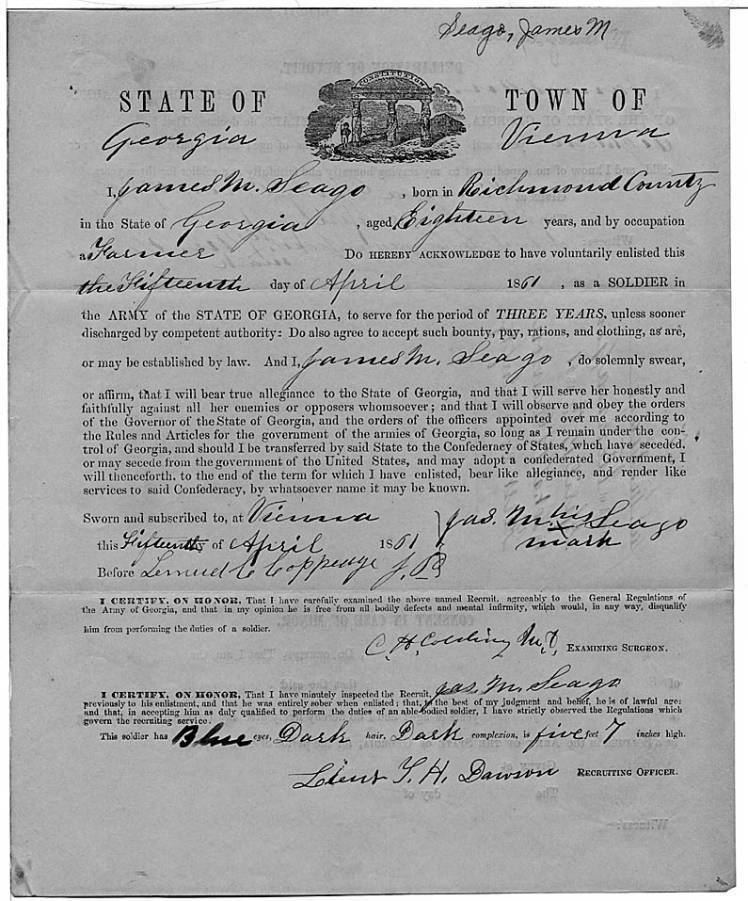 Seago, James M
CONSTITUTION
STATE OF TOWN OF
Georgia Vienna
I, James M. Seago , born in Richmond County
in the State of Georgia , aged Eighteen years, and by occupation
a Farmer DO HEREBY ACKNOWLEDGE to have voluntarily enlisted this
the Fifteenth day of April 1861 , as a SOLDIER in
the ARMY of the STATE OF GEORGIA, to serve for the period of THREE YEARS, unless sooner
discharged by competent authority: Do also agree to accept such bounty, pay, rations, and clothing, as are,
or may be established by law. And I, James M. Seago , do solemnly swear,
or affirm, that I will bear true allegiance to the State of Georgia, and that I will serve her honestly and
faithfully against all her enemies or opposers whomsoever; and that I will observe and obey the orders
of the Governor of the State of Georgia, and the orders of the officers appointed over me according to
the Rules and Articles for the government of the armies of Georgia, so long as I remain under the con-
trol of Georgia, and should I be transferred by said State to the Confederacy of States, whch have seceded,
or may secede from the government of the United States, and may adopt a confederated Government, I
will thenceforth, to the end of the term for which I have enlisted, bear like allegiance, and render like
services to said Confederacy, by whatsoever name it may be known.
Sworn and subscribed to, at Vienna
this Fifteenth of April 1861
Jas. M. his x Seago
mark
Before Lemuel C Coppeage J. P.
I CERTIFY, ON HONOR, That I have carefully examined the above named Recruit, agreeably to the General Regulations of
the Army of Georgia, and that in my opinion he is free from all bodily defects and mental infirmity, which would, in any way, disqualify
him from performing the duties of a soldier.
C. H. M.D, EXAMINING SURGEON.
I CERTIFY, ON HONOR, That I have minutely inspected the Recruit, Jas. M. Seago
previously to his enlistment, and that he was entirely sober when enlisted; that, to the best of my judgment and belief, he is of lawful age:
and that, in accepting him as duly qualified to perform the duties of an able-bodied soldier, I have strictly observed the Regulations which
govern the recruiting service.
This soldier has Blue eyes, Dark hair, Dark complexion, is five feet 7 inches high.
Lieut T. H. Dawson RECRUITING OFFICER.